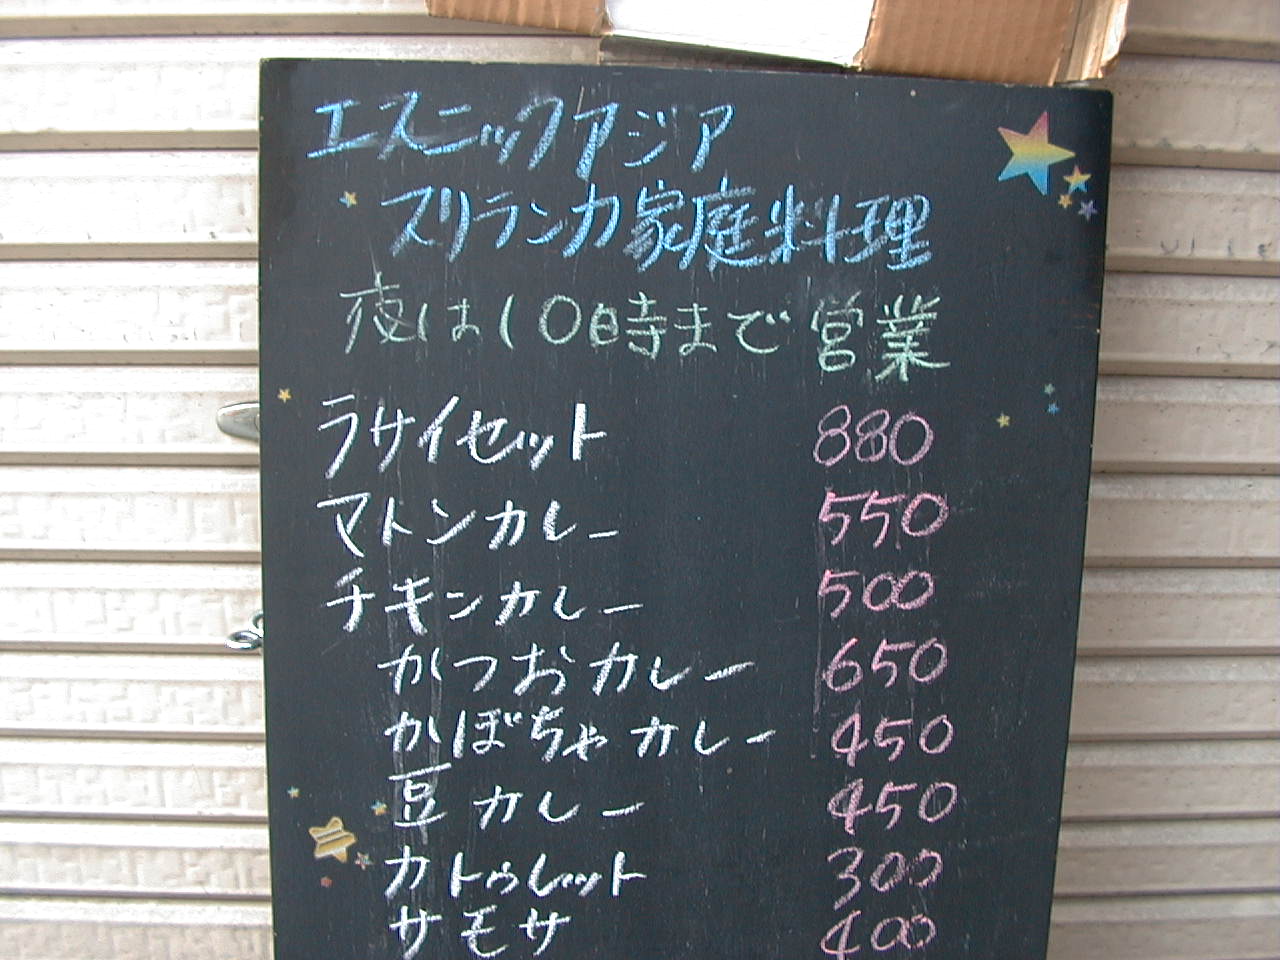 エスニックアジア
スリランカ家庭料理
夜は10時まで営業
ラサイセット 880
マトンカレー 550
チキンカレー 500
かつおカレー 650
かぼちゃカレー 450
豆カレー 450
カトゥレット 300
サモサ 400